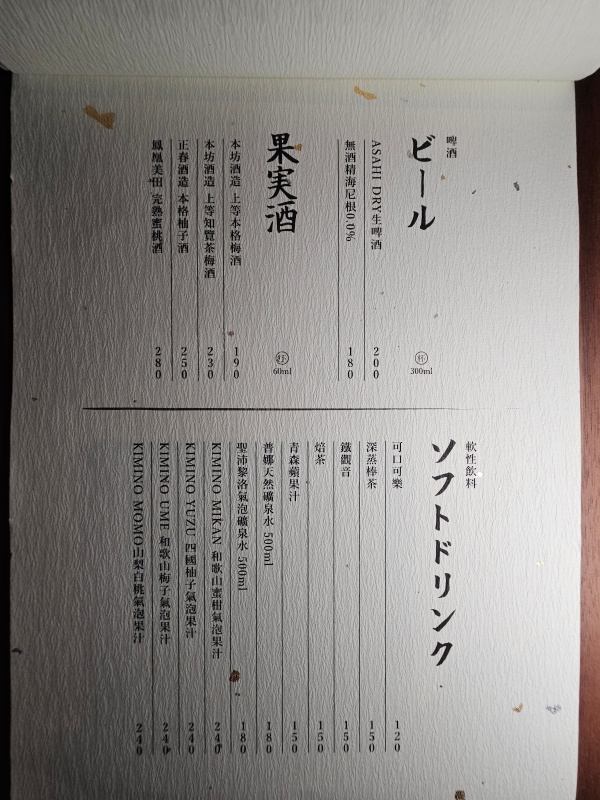 啤酒
ビール
杯
300ml
ASAHI DRY生啤酒 200
無酒精海尼根0.0% 180
果実酒
杯
60ml
本坊酒造 上等本格梅酒 190
本坊酒造 上等知覽茶梅酒 230
正春酒造 本格柚子酒 250
鳳凰美田 完熟蜜桃酒 280
軟性飲料
ソフトドリンク
可口可樂 120
深蒸棒茶 150
鐵觀音 150
焙茶 150
青森蘋果汁 150
普娜天然礦泉水 500ml 180
聖沛黎洛氣泡礦泉水 500ml 180
KIMINO MIKAN 和歌山蜜柑氣泡果汁 240
KIMINO YUZU 四國柚子氣泡果汁 240
KIMINO UME 和歌山梅子氣泡果汁 240
KIMINO MOMO山梨白桃氣泡果汁 240